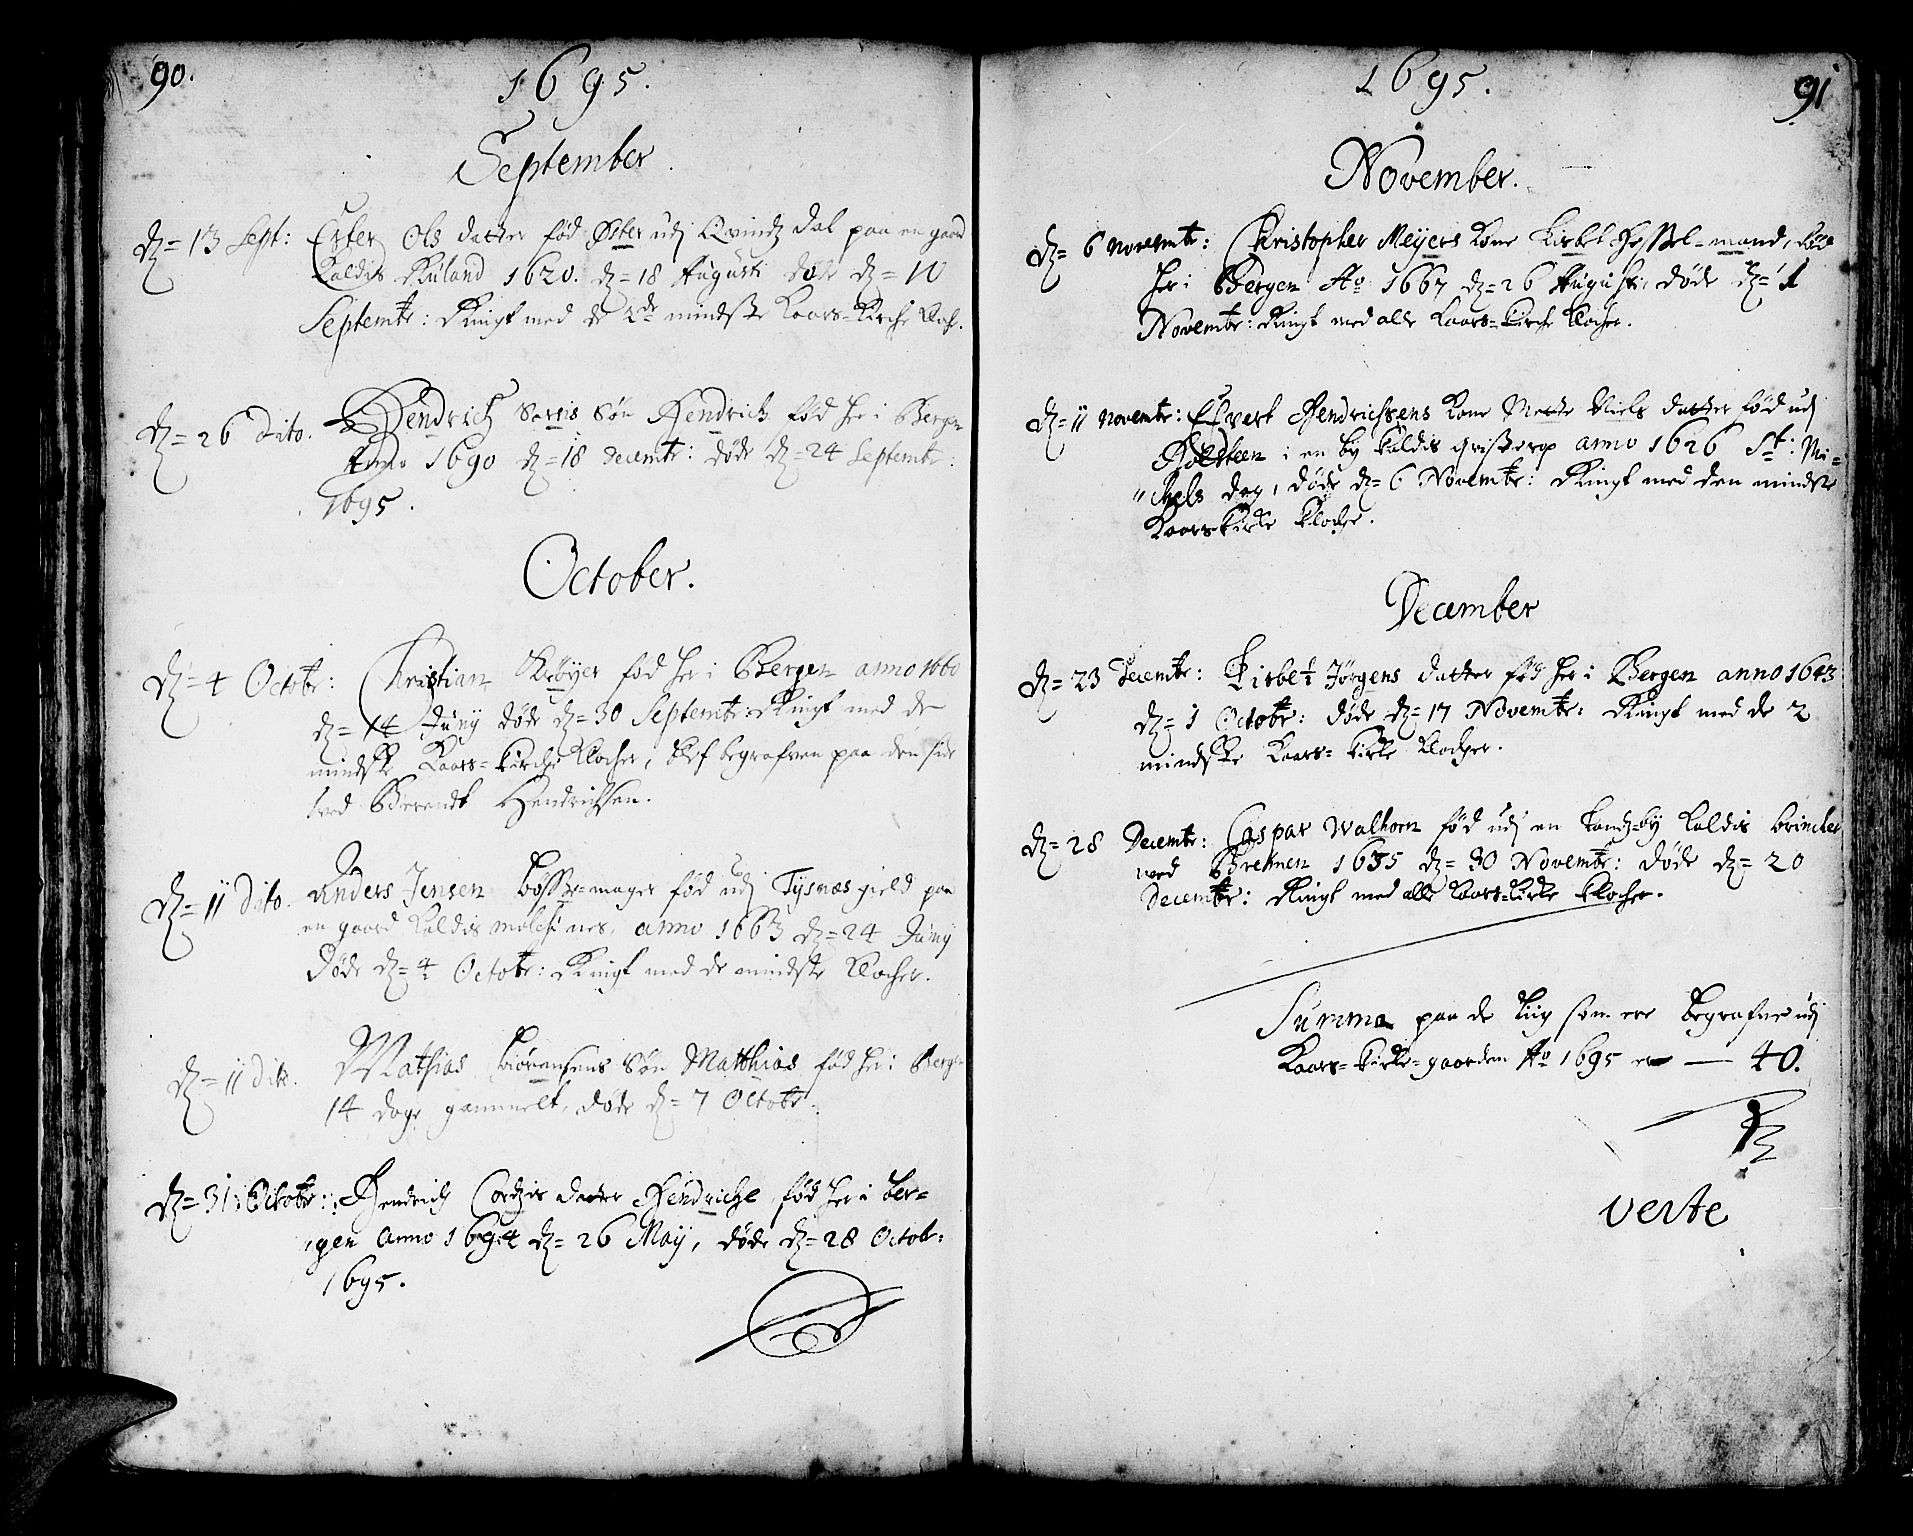 90.
1695.
September.
dz= 13 Sept: Ester Ols datter fød Øster udj Qvindz dal paa en gaard
kaldis Ruland 1620. dz= 18 Augusti døde dz= 10
Septembr: Ringt med de 2de mindste Kaars=Kirche Kloch.
dz= 26 Dito. Hendrich søn Hendrich fød her i Bergen
Anno 1690 dz= 18 Decembr: døde dz= 24 Septembr:
1695.
October.
dz= 4 Octobr: Christian Krøyer fød her i Bergen anno 1660
dz= 14 Junij døde dz= 30 Septembr: Ringt med de
mindste Kaars=Kirche Klocher, blef begrafven paa den side
ved Berendt Hendrichsen.
dz= 11 Dito. Anders Jensen Bøsse=mager fød udj Tysnæs gield paa
en gaard kaldis anno 1663 dz= 24 Junij
døde dz= 4 Octobr: Ringt med de mindste Klocher.
dz= 11 Dito. Mathias søn Matthias fød her i Bergen
14 dage gammelt, døde dz= 7 Octobr.
dz= 31: Octobr: Hendrich datter Hendriche fød her i Ber=
gen Anno 1694 dz= 26 Maij, døde dz= 28 Octob:
1695.
1695.
91
November.
dz= 6 Novembr: Christopher Meyers Kone Lisbet Hessel=mand, fød
her i Bergen Ao 1667 dz= 26 Augusti, døde dz= 1
Novembr: Ringt med alle Kaars=Kirche Klocher.
dz= 11 Novembr: Efvert Hendrichsens Kone Mette Niels datter fød udj
Holsteen i en by kaldis anno 1626 St: Mi=
"chels dag, døde dz= 6 Novembr: Ringt med den mindste
Kaars Kirke Klocher.
December
dz= 23 Decembr: Lisbet Jørgens datter fød her i Bergen anno 1643
dz= 1 Octobr: døde dz= 17 Novembr: Ringt med de 2
mindste Kaars=Kirke Klocher.
dz= 28 Decembr: Caspar Walhorn fød udj en landz=by kaldis brincker
ved Bremen 1635 dz= 30 Novembr: døde dz= 20
Decembr: Ringt med alle Kaars=Kirke Klocher.
Summa paa de Liig som ere begrafne udj
Kaars=Kirke=gaarden Ao 1695 er — 40.
verte